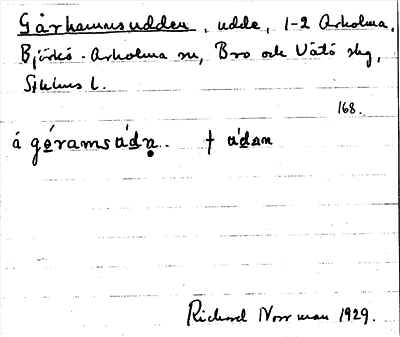 Gårhamnsudden, udde, 1-2 Arholma,
Björkö-Arholma sn, Bro och Vätö skg,
Sthlms l.
168.
á géramsúdn. † údan
Richard Norrman 1929.